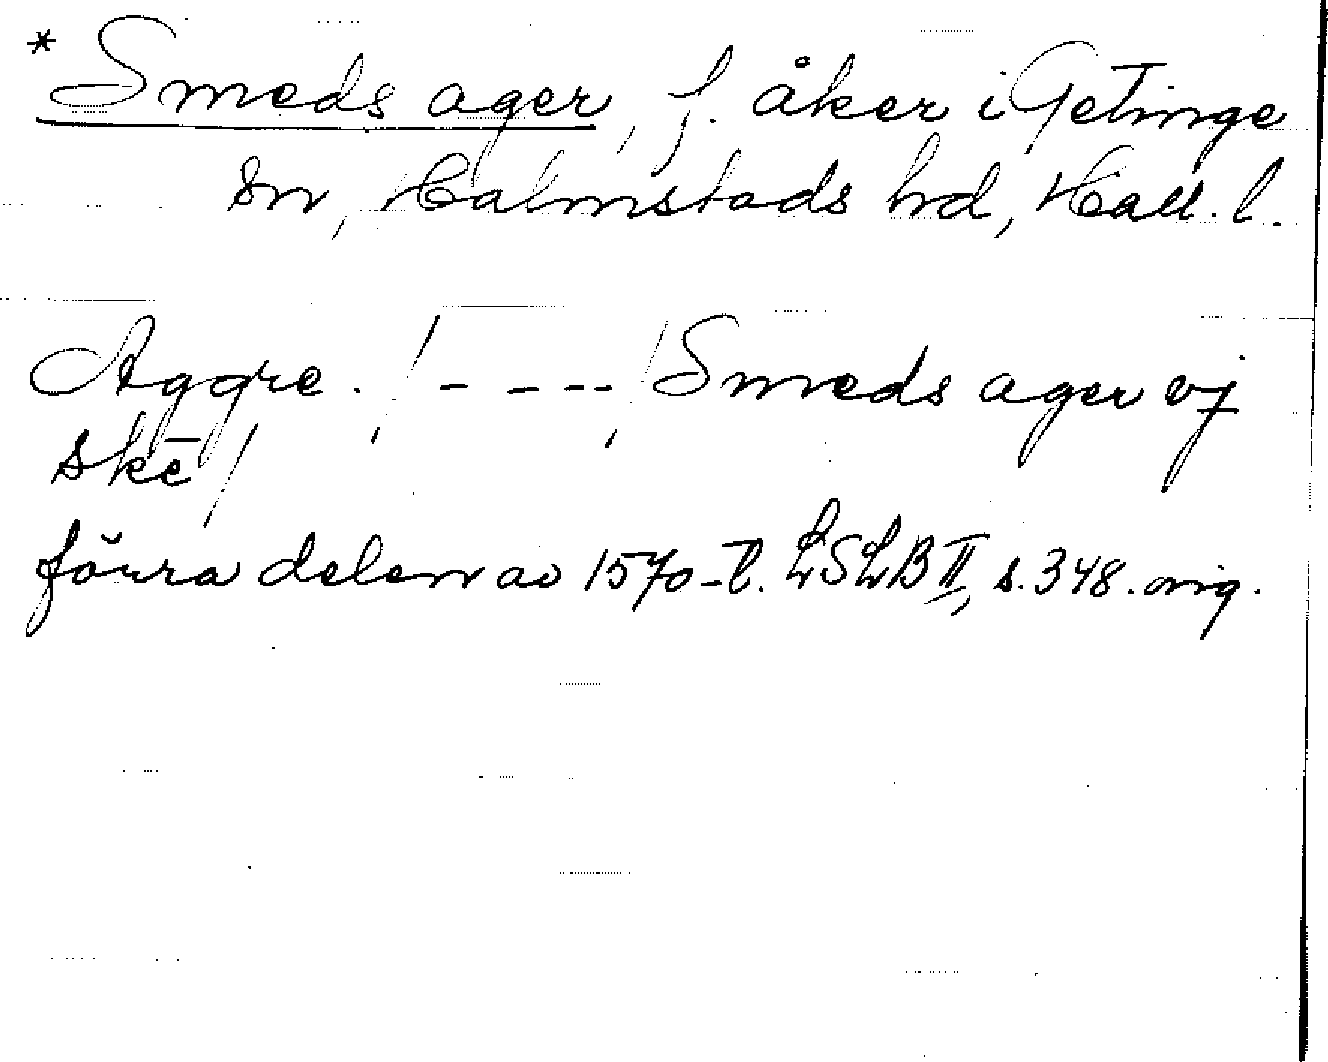 * Smeds ager, f. åker i Getinge
sn, Halmstads hd, Hall. l.
Aggre. / - - - - / Smeds ager vj
skē /
förra delen av 1570-t. LSLB II, s. 348. orig.